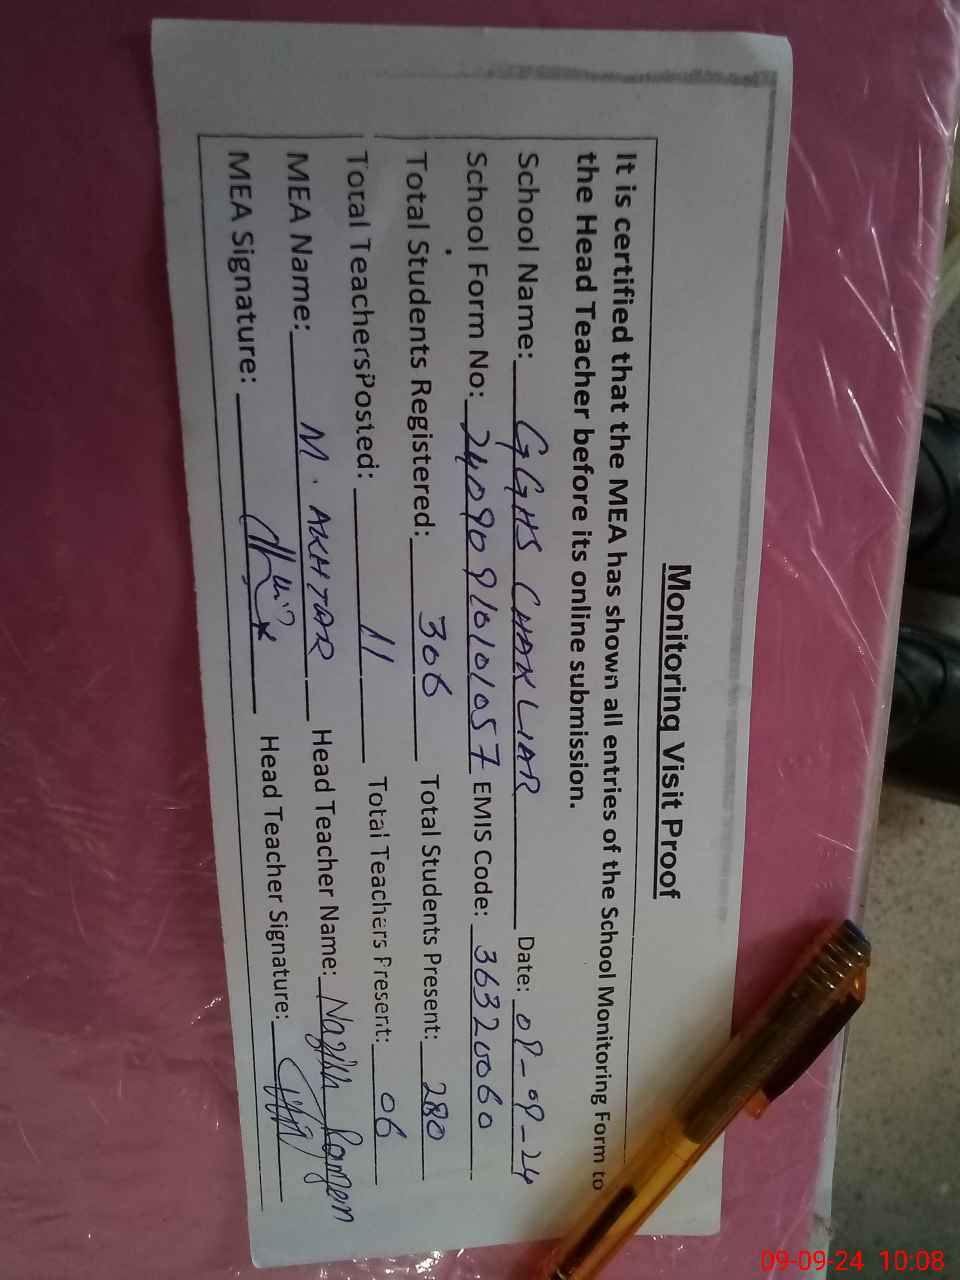 Monitoring Visit Proof
It is certified that the MEA has shown all entries of the School Monitoring Form to
the Head Teacher before its online submission.
School Name: GGHS CHAKLIAR Date: 09-09-24
School Form No: 24090910101057 EMIS Code: 36320060
Total Students Registered: 306 Total Students Present: 280
Total TeachersPosted: 11 Total Teachers Present: 06
MEA Name: M. AKHTAR Head Teacher Name:
MEA Signature: Head Teacher Signature:
09-09-24 10:08